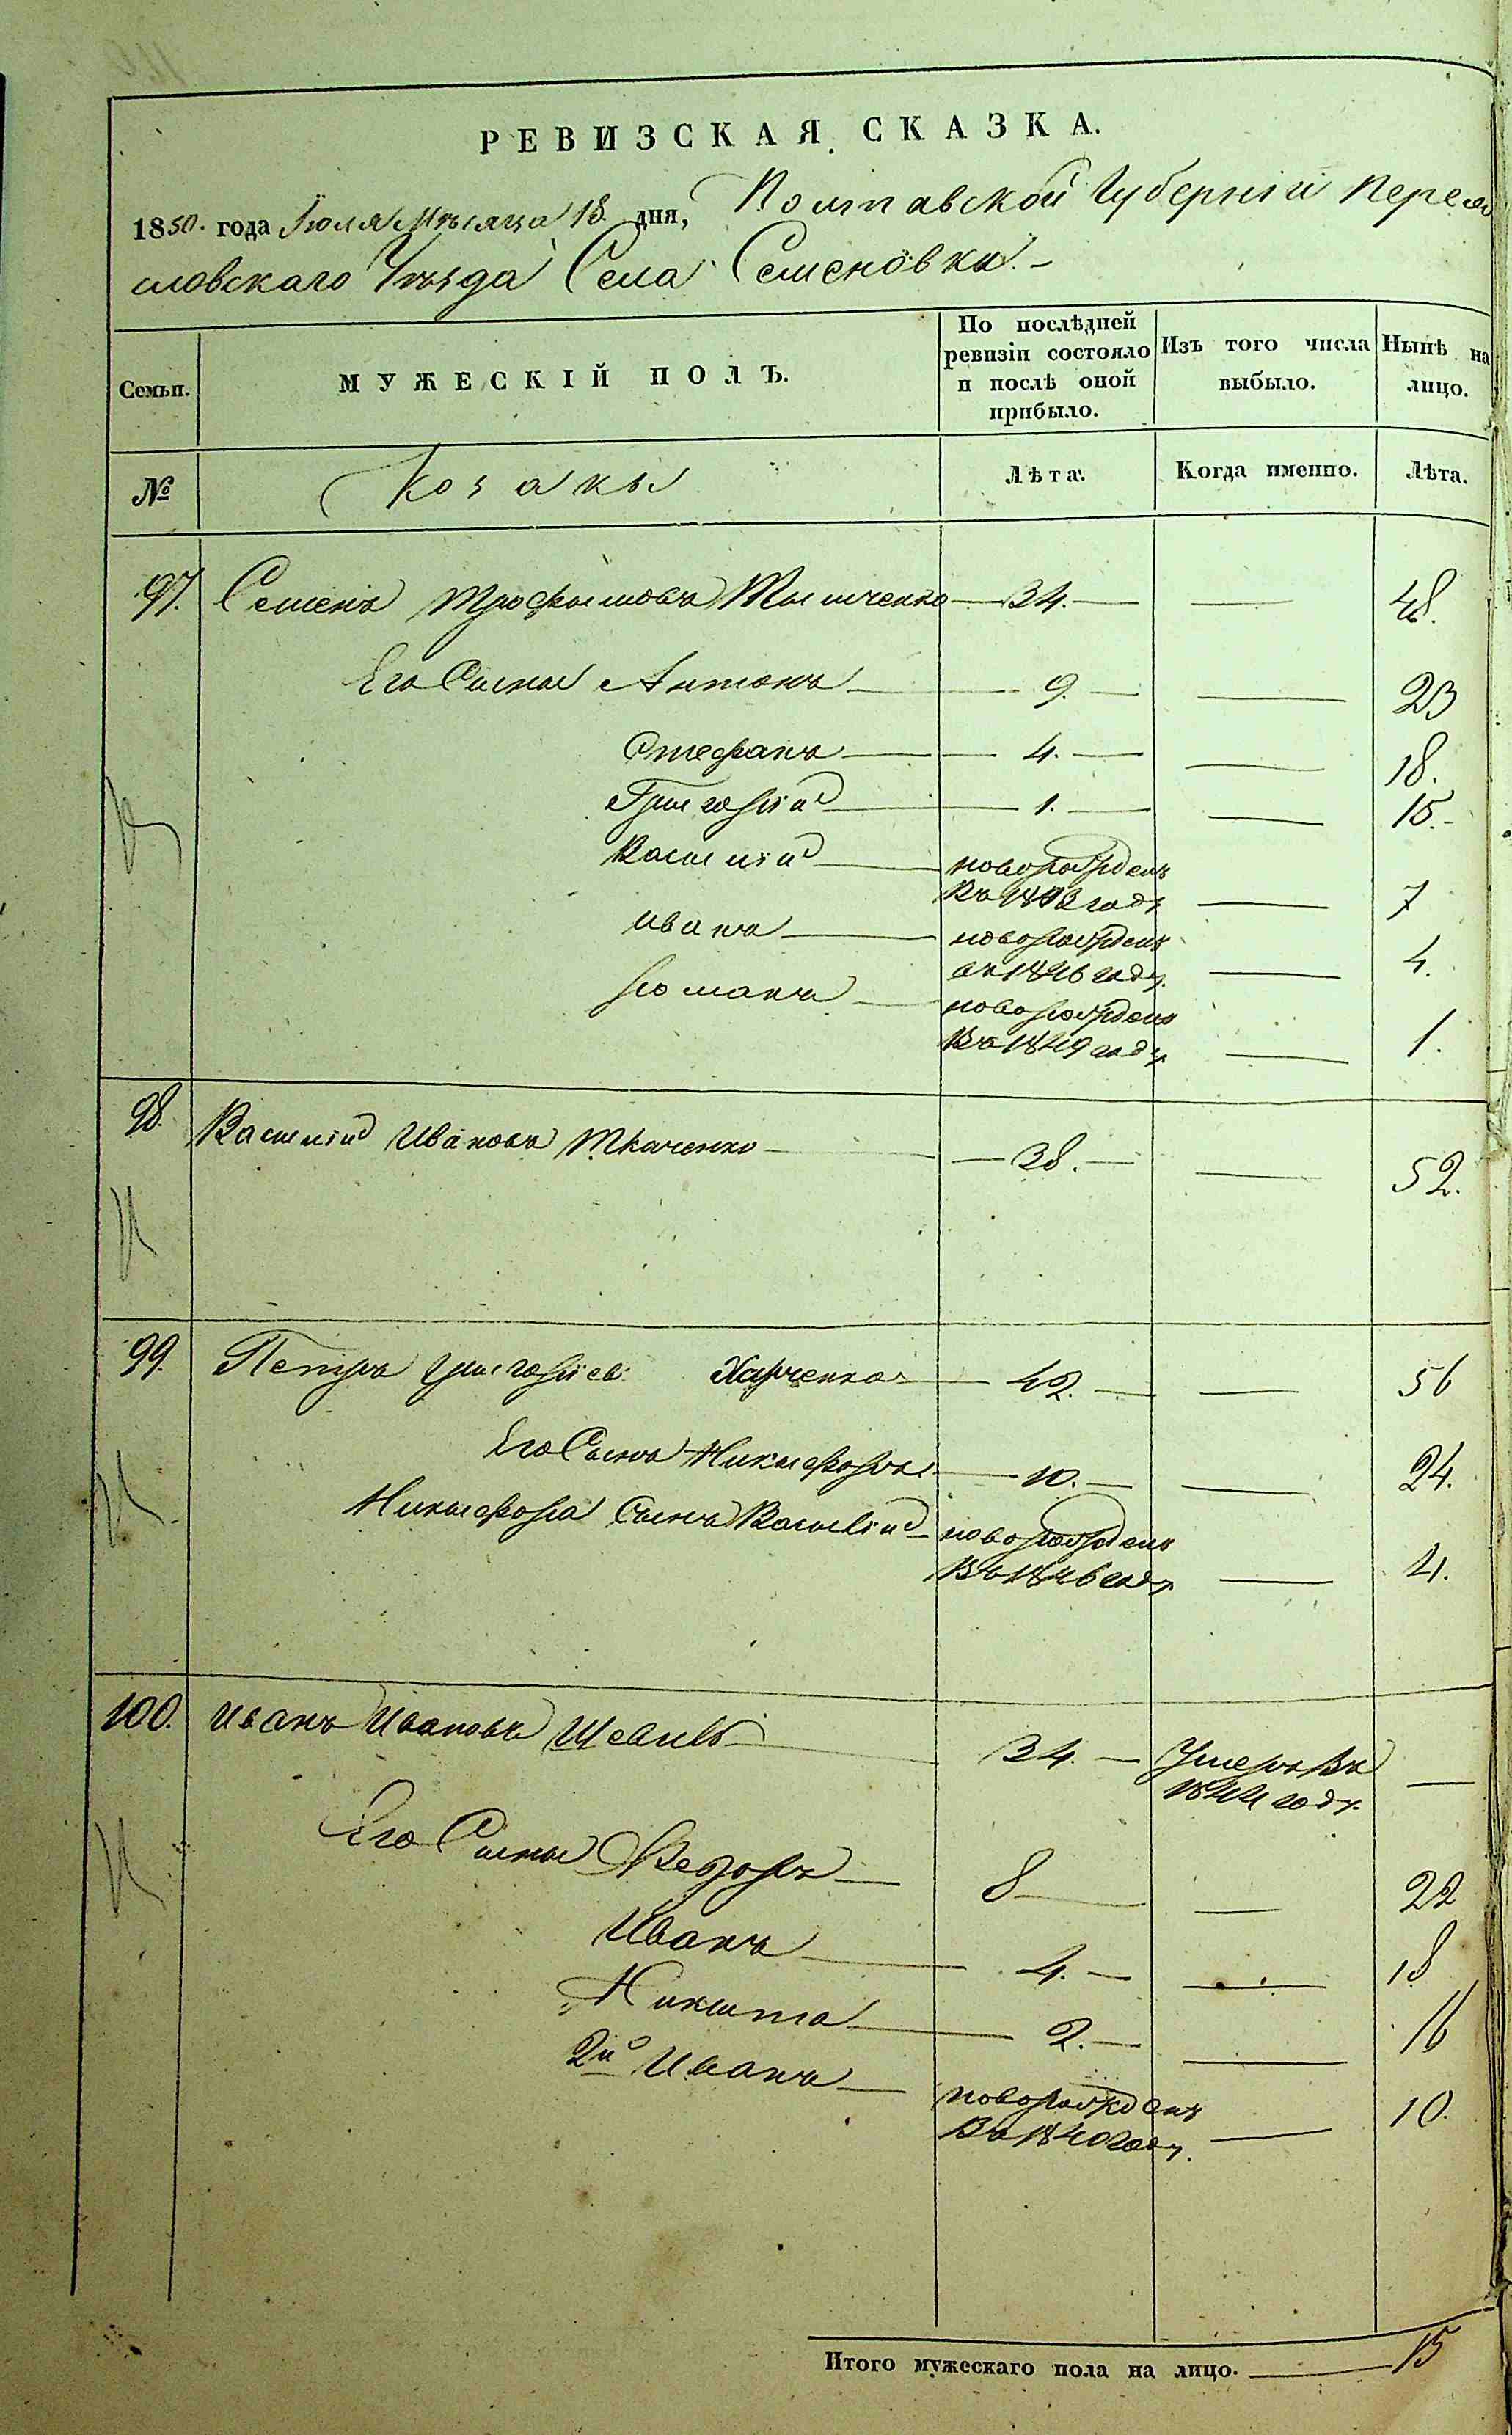 РЕВИЗСКАЯ СКАЗКА.
1850. года Іюля Мѣсяца 18. дня, Полтавской Губерніи Перея
славскаго Уѣзда Села Семеновки.
Семьи. МУЖЕСКІЙ ПОЛЪ. По послѣдней ревизіи состояло и послѣ оной прибыло. Изъ того числа выбыло. Нынѣ на лицо.
№ Козаки Лѣта. Когда именно. Лѣта.
97. Семенъ Трофымовъ 34. 48.
Его Сыны Антонъ 9. 23
Стефанъ 4. 18.
Григорій 1. 15.
Василій новорожденъ
въ 1843 году 7
Иванъ новорожденъ
въ 1846 году. 4.
Романъ новорожденъ
въ 1849 году 1.
98. Василій Ивановъ Ткаченко 38. 52.
99. Петръ Григоріев: Харченко 42. 56
Его Сынъ Никыфоръ 10. 24.
Никыфора Сынъ Василій новорожденъ
Въ 1846 году. 4.
100. Иванъ Ивановъ 34. Умеръ въ
1844 году.
Его Сыны Федоръ 8 22
Иванъ 4. 18
Никита 2. 16
2й Иванъ новорожденъ
Въ 1840 году. 10.
Итого мужескаго пола на лицо. 15